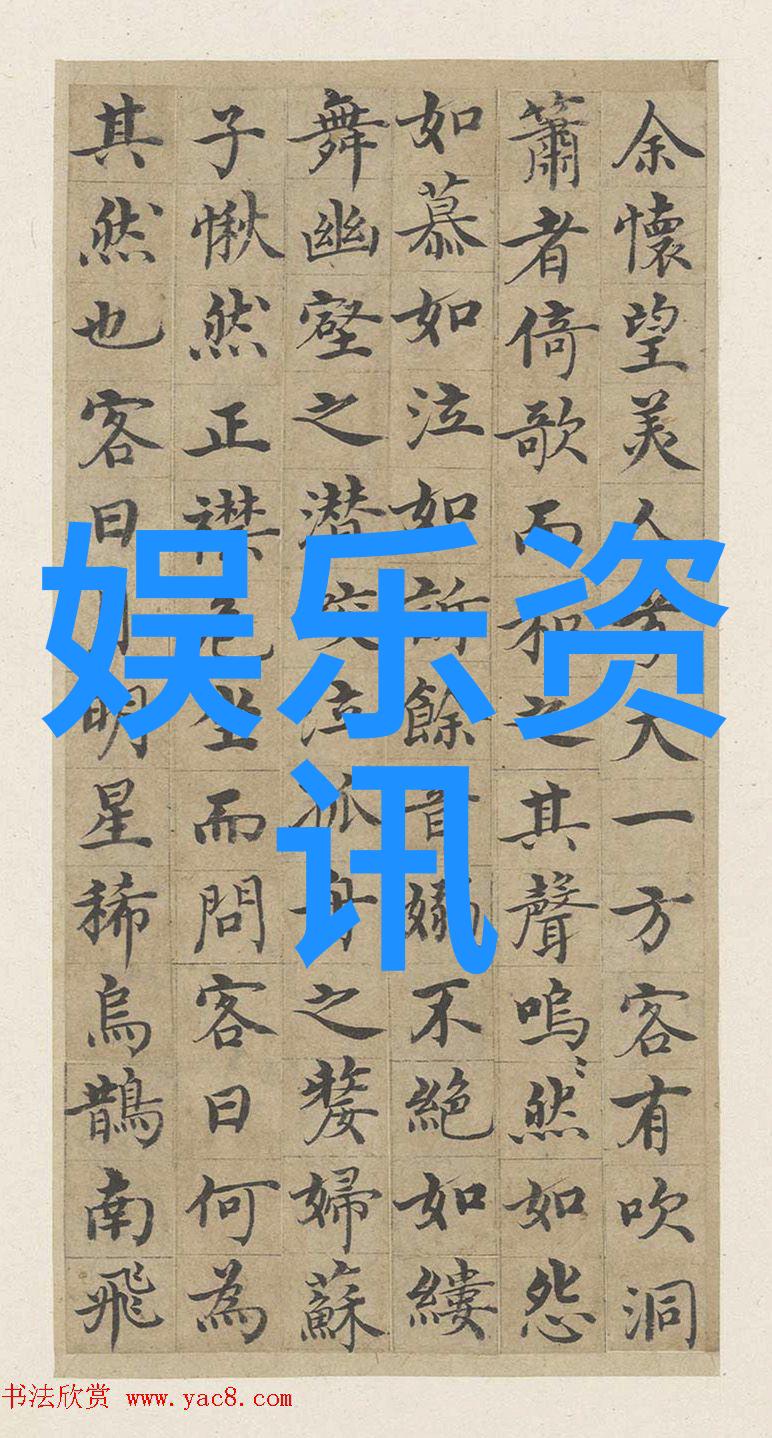 余懷望美人天一方客有吹洞
簫者倚歌而和之其聲嗚〻然如怨
如慕如泣如訴餘音嫋不絕如縷
舞幽壑之潛蛟泣孤舟之嫠婦蘇
子愀然正襟危坐而問客曰何為
其然也客曰月明星稀烏鵲南飛
娱乐资
讯
书法欣赏 www.yac8.com